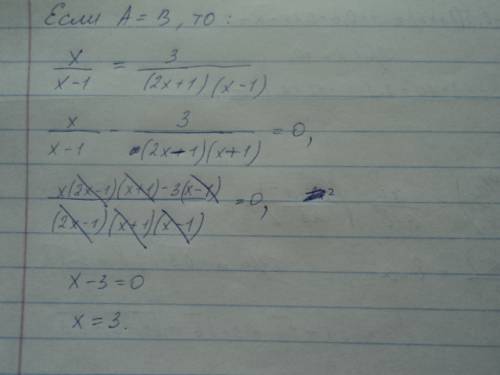 Если A = B, то:
x/(x-1) = 3/((2x+1)(x-1))
x/(x-1) - 3/((2x-1)(x+1)) = 0,
(x(2x-1)(x+1)-3(x-1))/((2x-1)(x+1)(x-1)) = 0,
x-3=0
x=3.